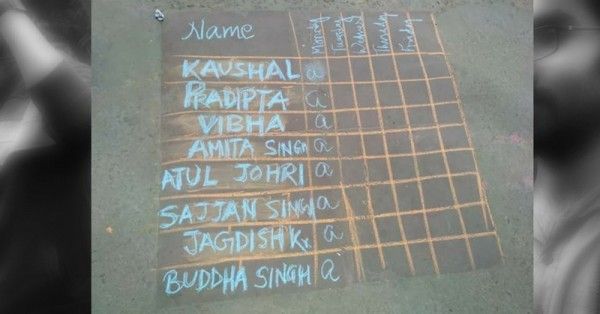 Name Monday Tuesday Thursday Friday
KAUSHAL a
PRADIPTA a
VIBHA a
AMITA SINGH a
ATUL JOHRI a
SAJJAN SINGH a
JAGDISH Kr. a
BUDDHA SINGH a